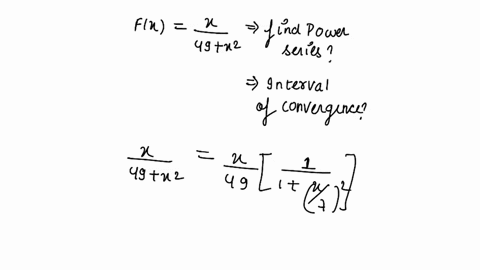 F(x) = x/(49+x²) ⇒ find Power
series?
⇒ Interval
of convergence?
x/(49+x²) = x/49 [1/(1+(x/7)²)]